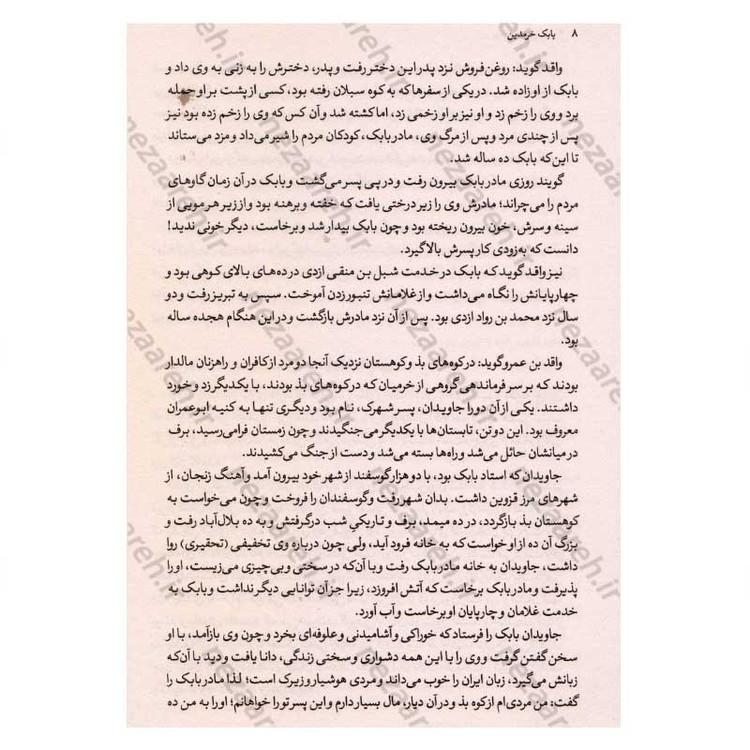 ۸ بابک خرمدین
واقد گوید: روغن‌فروش نزد پدر این دختر رفت و پدر، دخترش را به زنی به وی داد و
بابک از او زاده شد. در یکی از سفرها که به کوه سبلان رفته بود، کسی از پشت بر او حمله
برد و وی را زخم زد و او نیز بر او زخمی زد، اما کشته شد و آن کس که وی را زخم زده بود نیز
پس از چندی مرد و پس از مرگ وی، مادر بابک، کودکان مردم را شیر می‌داد و مزد می‌ستاند
تا این‌که بابک ده ساله شد.
گویند روزی مادر بابک بیرون رفت و در پی پسر می‌گشت و بابک در آن زمان گاوهای
مردم را می‌چراند؛ مادرش وی را زیر درختی یافت که خفته و برهنه بود و از زیر هر مویی از
سینه و سرش، خون بیرون ریخته بود و چون بابک بیدار شد و برخاست، دیگر خونی ندید!
دانست که به‌زودی کار پسرش بالا گیرد.
نیز واقد گوید که بابک در خدمت شبل بن منقی ازدی در ده‌های بالای کوهی بود و
چهارپایانش را نگاه می‌داشت و از غلامانش تنبور زدن آموخت. سپس به تبریز رفت و دو
سال نزد محمد بن رواد ازدی بود. پس از آن نزد مادرش بازگشت و در این هنگام هجده ساله
بود.
واقد بن عمرو گوید: در کوه‌های بذ و کوهستان نزدیک آنجا دو مرد از کافران و راهزنان مالدار
بودند که بر سر فرماندهی گروهی از خرمیان که در کوه‌های بذ بودند، با یکدیگر زد و خورد
داشتند. یکی از آن دو را جاویدان، پسر شهرک، نام بود و دیگری تنها به کنیه ابوعمران
معروف بود. این دو تن، تابستان‌ها با یکدیگر می‌جنگیدند و چون زمستان فرا می‌رسید، برف
در میانشان حائل می‌شد و راه‌ها بسته می‌شد و دست از جنگ می‌کشیدند.
جاویدان که استاد بابک بود، با دو هزار گوسفند از شهر خود بیرون آمد و آهنگ زنجان، از
شهرهای مرز قزوین داشت. بدان شهر رفت و گوسفندان را فروخت و چون می‌خواست به
کوهستان بذ بازگردد، در ده میمد، برف و تاریکیِ شب درگرفتش و به ده بلال‌آباد رفت و
بزرگ آن ده از او خواست که به خانه فرود آید، ولی چون درباره وی تخفیفی (تحقیری) روا
داشت، جاویدان به خانه مادر بابک رفت و با آن‌که در سختی و بی‌چیزی می‌زیست، او را
پذیرفت و مادر بابک برخاست که آتش افروزد، زیرا جز آن توانایی دیگر نداشت و بابک به
خدمت غلامان و چارپایان او برخاست و آب آورد.
جاویدان بابک را فرستاد که خوراکی و آشامیدنی و علوفه‌ای بخرد و چون وی بازآمد، با او
سخن گفتن گرفت و وی را با این همه دشواری و سختی زندگی، دانا یافت و دید با آن‌که
زبانش می‌گیرد، زبان ایران را خوب می‌داند و مردی هوشیار و زیرک است؛ لذا مادر بابک را
گفت: من مردی‌ام از کوه بذ و در آن دیار، مال بسیار دارم و این پسر تو را خواهانم؛ او را به من ده
nezaareh.ir